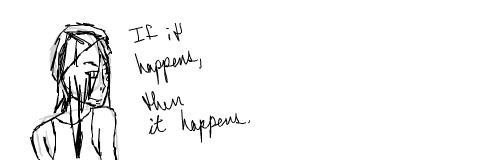 If it
happens,
then
it happens.